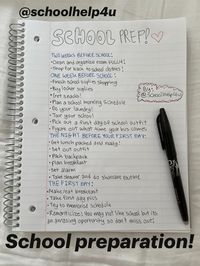 @schoolhelp4u
SCHOOL PREP!
TWO WEEKS BEFORE SCHOOL:
• Clean and organize room FULLY!
• Shop for back to school clothes!
ONE WEEK BEFORE SCHOOL:
• Finish school supplies shopping
• Buy locker supplies
• Get snacks!
• Plan a school morning schedule
• Do your laundry!
• Tour your school!
• Pick out a first day of school outfit
• Figure out what name your bus comes
THE NIGHT BEFORE YOUR FIRST DAY:
• Get lunch packed and ready!
• Set out outfit
• Pack backpack
• Plan breakfast
• Set alarm
• Take shower and do skincare routine
THE FIRST DAY!
• Make/eat breakfast!
• Take first day pics
• Try to memorize schedule
• Romanticize! You may not like school but its
an amazing opportunity so don't miss out!
By:
@Schoolhelp4u
School preparation!